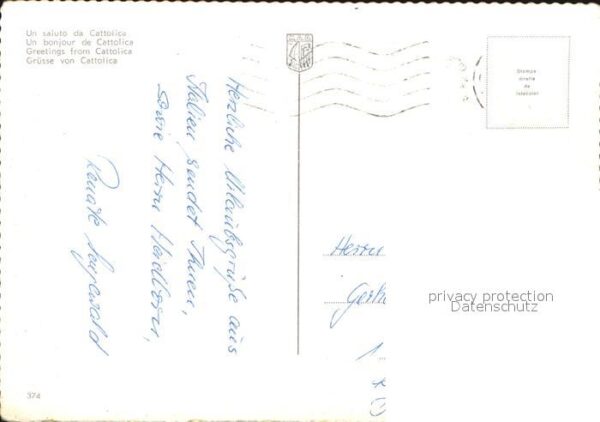 Un saluto da Cattolica
Un bonjour de Cattolica
Greetings from Cattolica
Grüsse von Cattolica
Stampa
diretta
da
fotocolor
Herzliche Urlaubsgrüße aus
Italien sendet Ihnen,
sowie Herrn
Renate
Herrn
privacy protection
Datenschutz
374